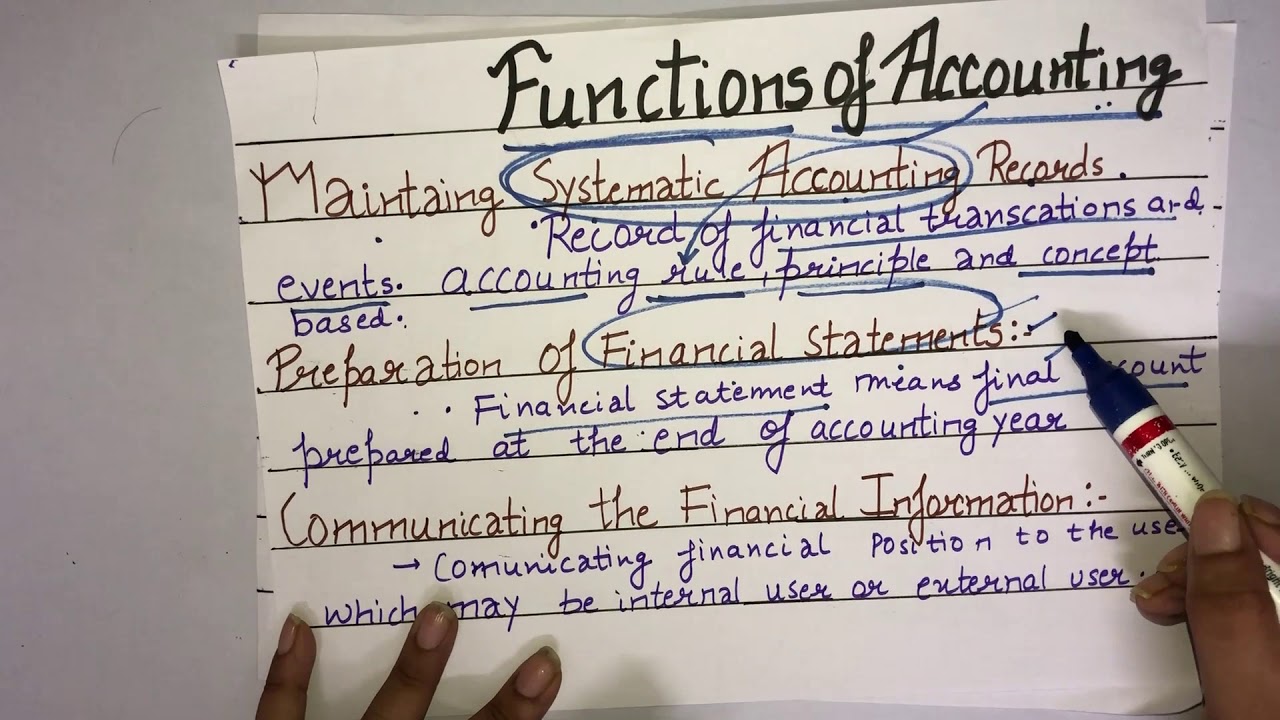 Functions of Accounting
Maintaing Systematic Accounting Records.
Record of financial transcations and
events. accounting rule, principle and concept
based.
Preparation of Financial Statements:-
Financial statement means final account
prepared at the end of accounting year
Communicating the Financial Information:-
→ Comunicating financial position to the use
which may be internal user or external user.